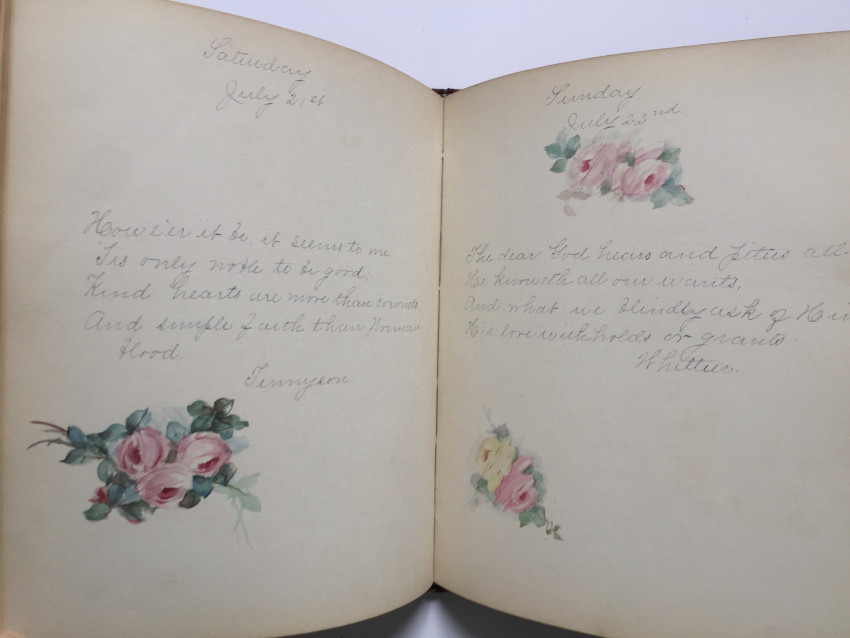 Saturday
July 21st
Howe'er it be, it seems to me
'Tis only noble to be good;
Kind hearts are more than coronets
And simple faith than Norman
blood.
Tennyson
Sunday
July 22nd
The dear God hears and pities all
He knoweth all our wants,
And what we blindly ask of Him
His love withholds or grants.
Whittier.